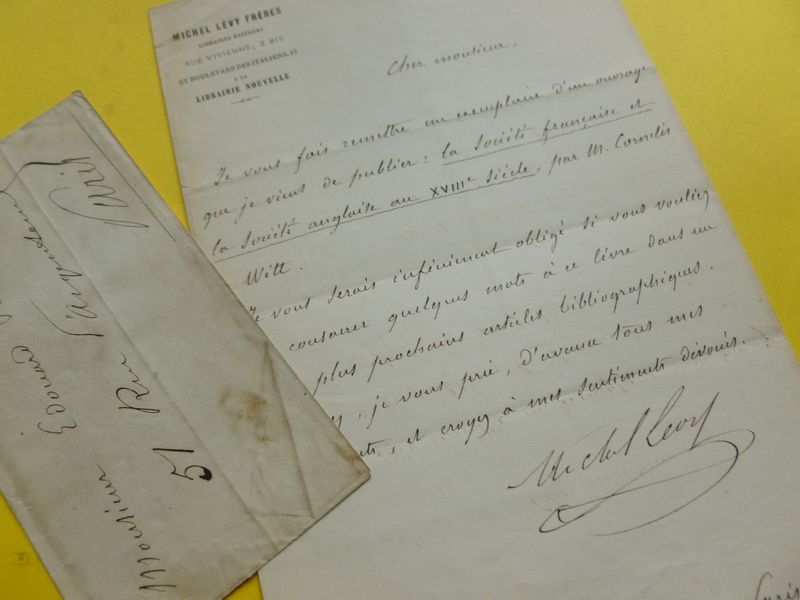 MICHEL LÉVY FRÈRES
LIBRAIRES ÉDITEURS
RUE VIVIENNE, 2 BIS
ET BOULEVARD DES ITALIENS, 15
A LA
LIBRAIRIE NOUVELLE
Cher monsieur,
Je vous fais remettre un exemplaire d'un ouvrage
que je viens de publier : la Société française et
la Société anglaise au XVIIIe siècle, par M. Cornelis
Witt.
Je vous serais infiniment obligé si vous vouliez
consacrer quelques mots à ce livre dans un
plus prochains articles bibliographiques.
, je vous prie, d'avance tous mes
, et croyez à mes sentiments dévoués.
Michel Lévy
Paris
Monsieur Edouard
51 Rue
Paris